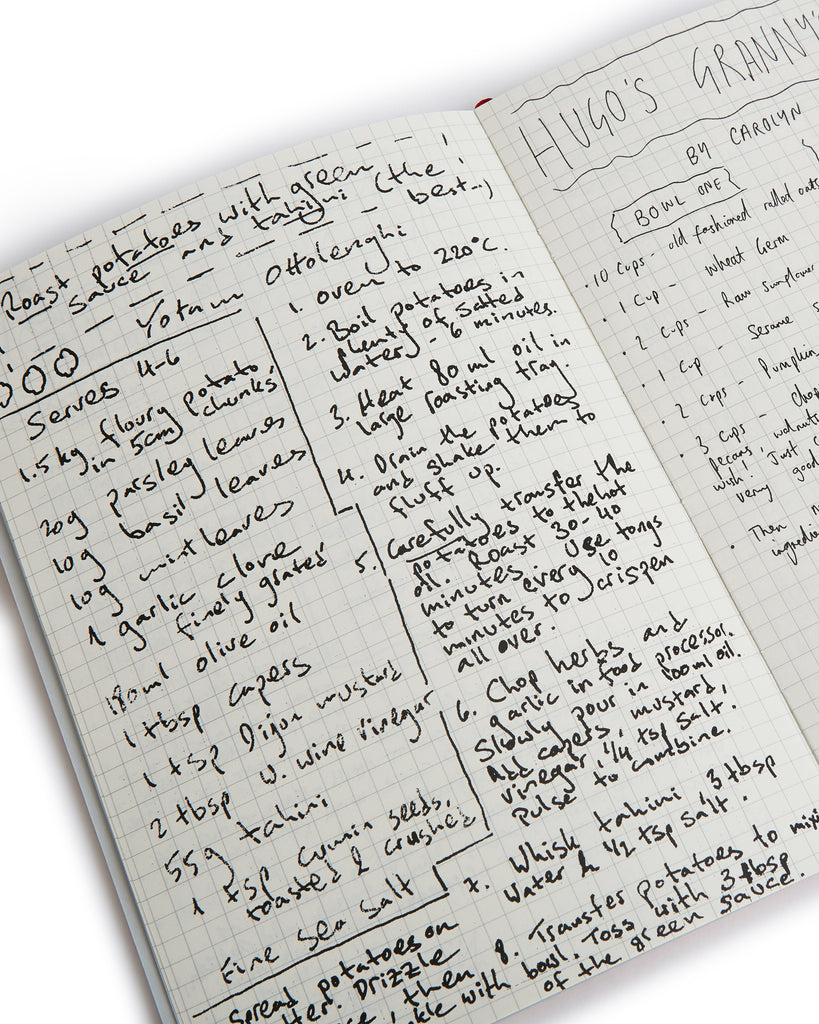 Roast potatoes with green
sauce and tahini (the
best...)!
Yotam Ottolenghi
Serves 4-6
1.5kg floury potato,
in 5cm chunks
20g parsley leaves
10g basil leaves
10g mint leaves
1 garlic clove
finely grated
180ml olive oil
1 tbsp capers
1 tsp Dijon mustard
2 tbsp w. wine vinegar
55g tahini
1 tsp cumin seeds,
toasted & crushed
Fine sea salt
1. Oven to 220°C.
2. Boil potatoes in
plenty of salted
water - 6 minutes.
3. Heat 80ml oil in
large roasting tray.
4. Drain the potatoes
and shake them to
fluff up.
5. Carefully transfer the
potatoes to the hot
oil. Roast 30-40
minutes. Use tongs
to turn every 10
minutes to crispen
all over.
6. Chop herbs and
garlic in food processor.
Slowly pour in 100ml oil.
Add capers, mustard,
vinegar, 1/4 tsp salt.
Pulse to combine.
7. Whisk tahini, 3 tbsp
water & 1/2 tsp salt.
8. Transfer potatoes to
bowl. Toss with 3 tbsp
of the green sauce.
Spread potatoes on
Drizzle
, then
with
HUGO'S GRANNY'S
BY CAROLYN
BOWL ONE
• 10 Cups - old fashioned rolled oats
• 1 Cup - Wheat Germ
• 2 Cups - Raw Sunflower
• 1 Cup - Sesame
• 2 Cups - Pumpkin
• 3 Cups -
pecans, walnuts
wish! Just
very good
• Then